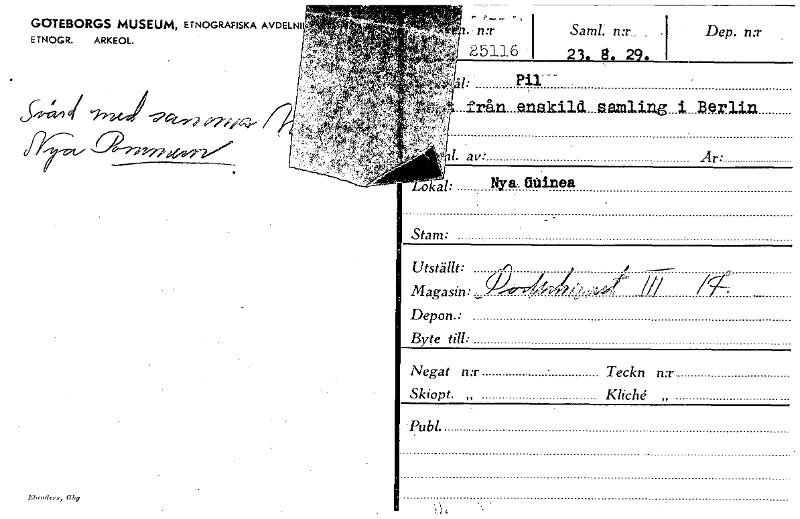 GÖTEBORGS MUSEUM, ETNOGRAFISKA AVDELNI
ETNOGR. ARKEOL.
Svärd med samma
Nya Pommern
n:r 25116
Saml. n:r 23. 8. 29.
Dep. n:r
ål: Pil
från enskild samling i Berlin
ml. av: År:
Lokal: Nya Guinea
Stam:
Utställt:
Magasin: III 17.
Depon.:
Byte till:
Negat n:r Teckn n:r
Skiopt. „ Kliché „
Publ.
Elanders, Gbg